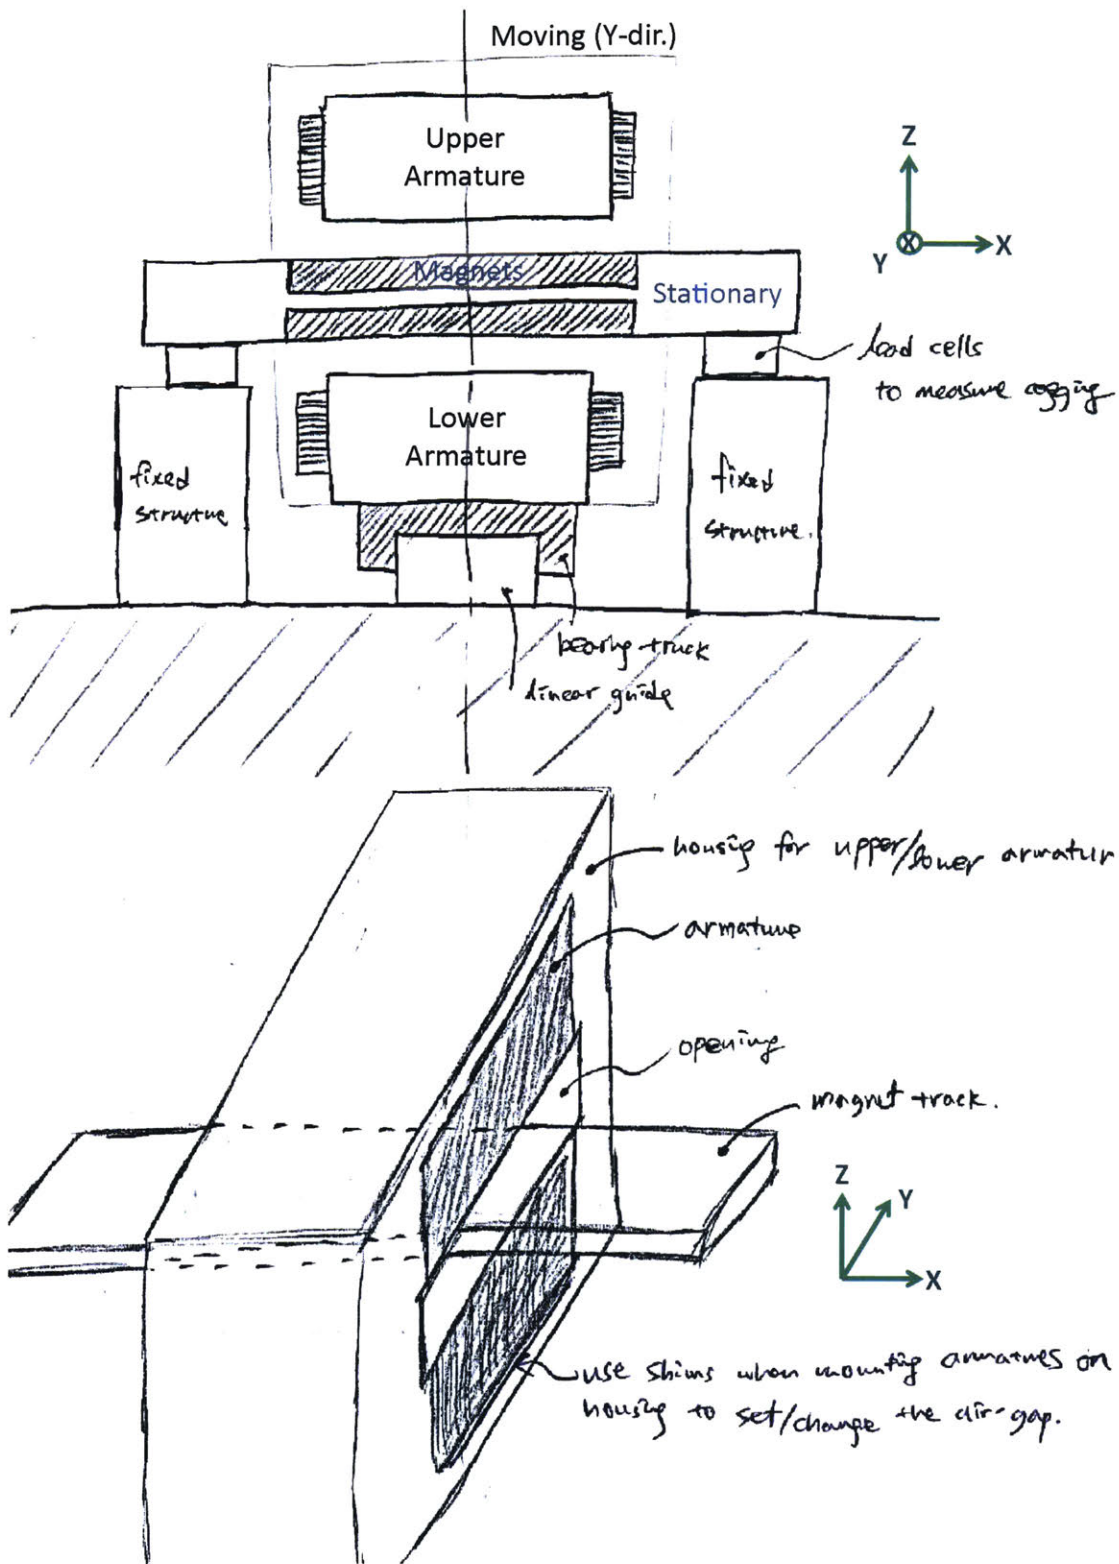 Moving (Y-dir.)
Upper
Armature
Z
Y
X
Magnets
Stationary
load cells
to measure cogging
Lower
Armature
fixed
structure
fixed
structure.
bearing truck
linear guide
housing for upper/lower armatur
armature
opening
magnet track.
Z
Y
X
use shims when mounting armatures on
housing to set/change the air-gap.